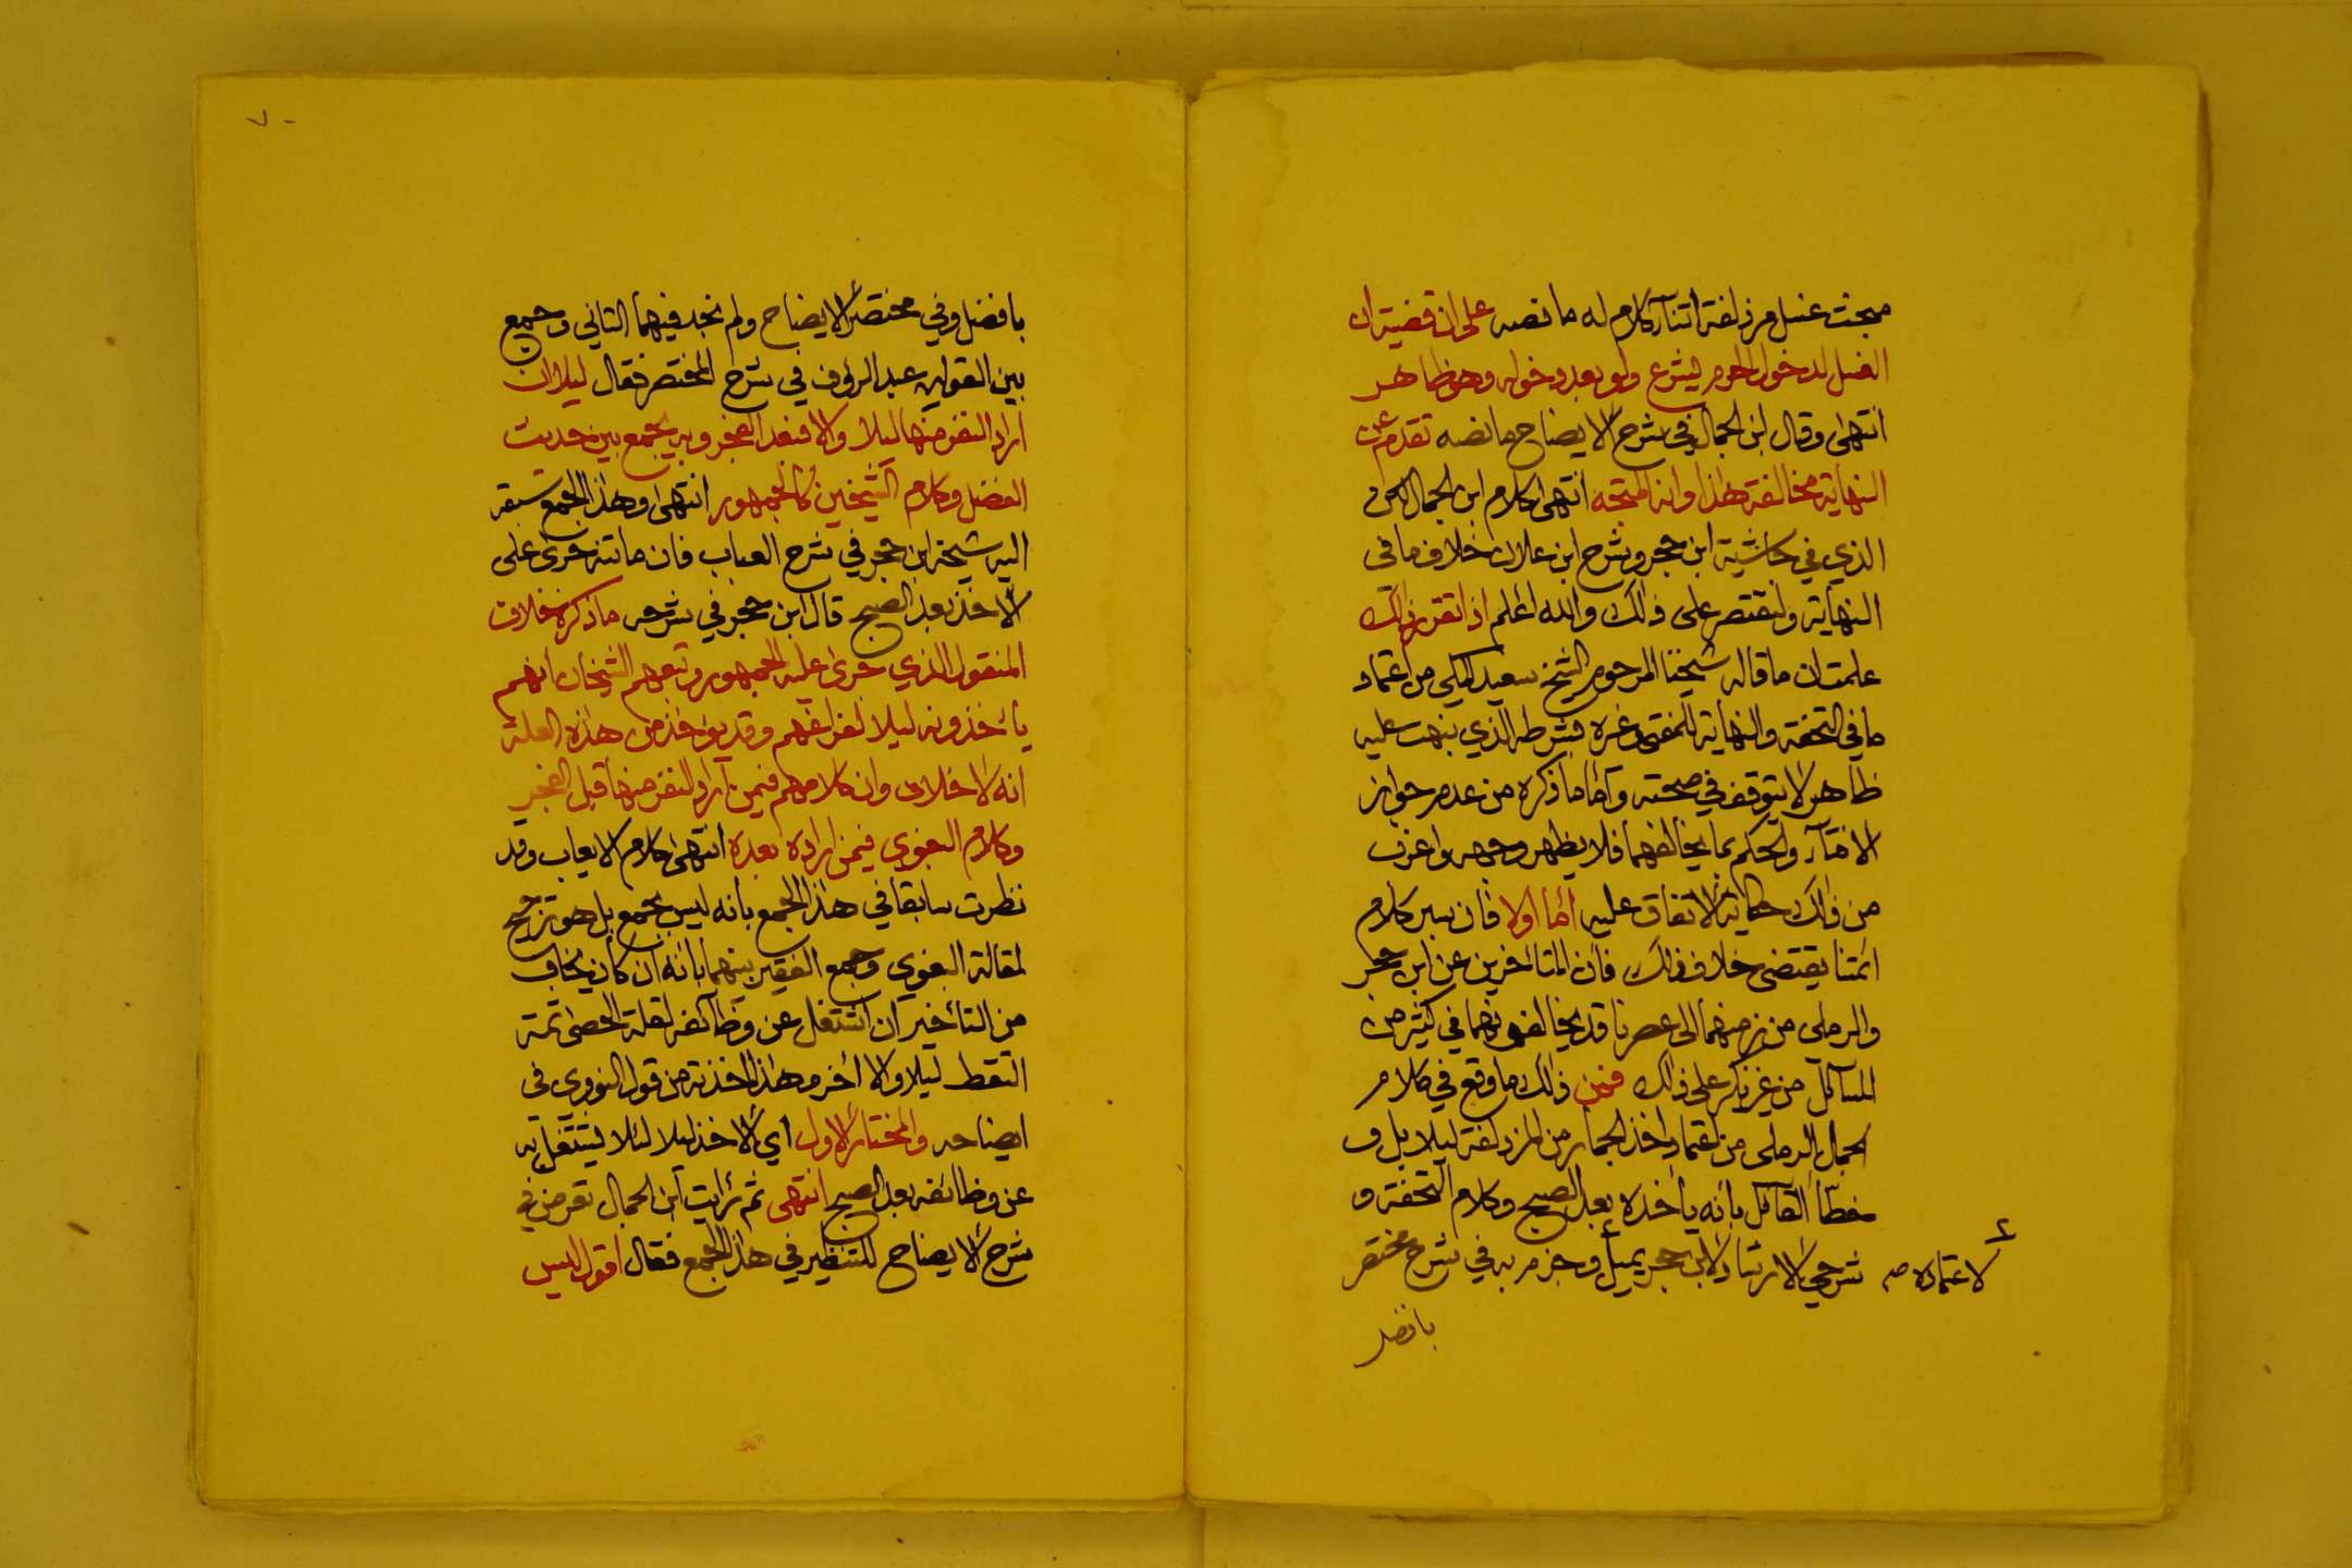 مبحث غسل مزدلفة اثنآء كلام له ما نصه على ان قضيته ان
الغسل لدخول الحرم يشرع ولو بعد دخوله وهو ظاهر
انتهى وقال ابن الجمال في شرح الايضاح ما نصه تقدم عن
النهاية مخالفة هذا وانه المتجه انتهى كلام ابن الجمال لكن
الذي في حاشية ابن حجر وشرح ابن علان خلاف ما في
النهاية ولنقتصر على ذلك والله اعلم اذا تقرر ذلك
علمت ان ما قاله شيخنا المرحوم الشيخ سعيد المكي من اعتماد
ما في التحفة والنهاية للمفتي وغيره بشرطه الذي نبهت عليه
ظاهر لا يتوقف في صحته وأما ما ذكره من عدم جواز
الافتآء والحكم بما يخالفهما فلا يظهر وجهه واغرب
من ذلك حكاية الاتفاق عليه أما اولا فان سبر كلام
ائمتنا يقتضي خلاف ذلك فان المتأخرين عن ابن حجر
والرملي من زمنهما الى عصرنا قد يخالفونهما في كثير من
المسآئل من غير نكير على ذلك فمن ذلك ما وقع في كلام
الجمال الرملي من اعتماد اخذ الجمار من المزدلفة ليلا بل و
خطأ القآئل بأنه يأخذه بعد الصبح وكلام التحفة و
شرحي الارشاد لابن حجر يميل وجزم به في شرح مختصر
لاعتماده صح
بافضل
بافضل وفي مختصر الايضاح ولم نجد فيهما الثاني وجمع
بين القولين عبد الرؤف في شرح المختصر فقال ليلا ان
اراد النفر منها ليلا والا فبعد الفجر وبه يجمع بين حديث
الفضل وكلام الشيخين كالجمهور انتهى وهذا الجمع سبقه
اليه شيخه ابن حجر في شرح العباب فان ماتنه جرى على
الاخذ بعد الصبح قال ابن حجر في شرحه ما ذكره خلاف
المنقول الذي جرى عليه الجمهور وتبعهم الشيخان انهم
يأخذونه ليلا لفراغهم وقد يؤخذ من هذه العلة
انه لا خلاف وان كلامهم فيمن اراد النفر منها قبل الفجر
وكلام البغوي فيمن اراده بعده انتهى كلام الايعاب وقد
نظرت سابقا في هذا الجمع بانه ليس بجمع بل هو ترجيح
لمقالة البغوي وجمع الفقير بينهما بأنه ان كان يخاف
من التأخير ان اشتغل عن وظآئفه لقلة الحصى ثمة
التقط ليلا والا أخر وهذا اخذته من قول النووي في
ايضاحه والمختار الاول أي الاخذ ليلا لئلا يشتغل به
عن وظائفه بعد الصبح انتهى ثم رأيت ابن الجمال تعرض في
شرح الايضاح للتنظير في هذا الجمع فقال اقول ليس